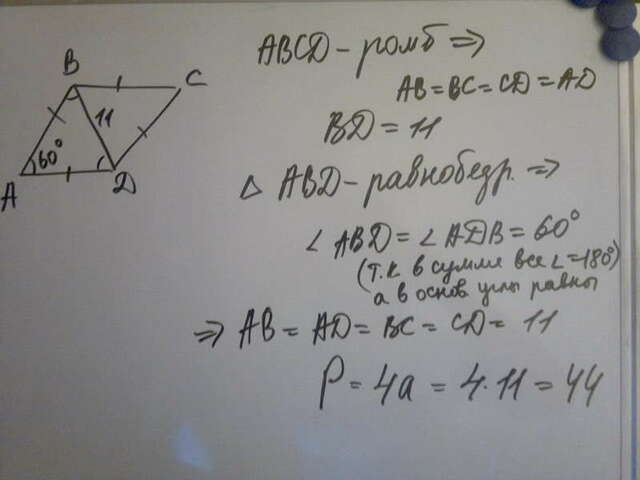 ABCD - ромб ⇒
AB = BC = CD = AD
BD = 11
△ ABD - равнобедр. ⇒
∠ ABD = ∠ ADB = 60°
(т.к в сумме все ∠ = 180°)
а в основ углы равны
⇒ AB = AD = BC = CD = 11
P = 4a = 4 · 11 = 44
B
C
11
60°
A
D